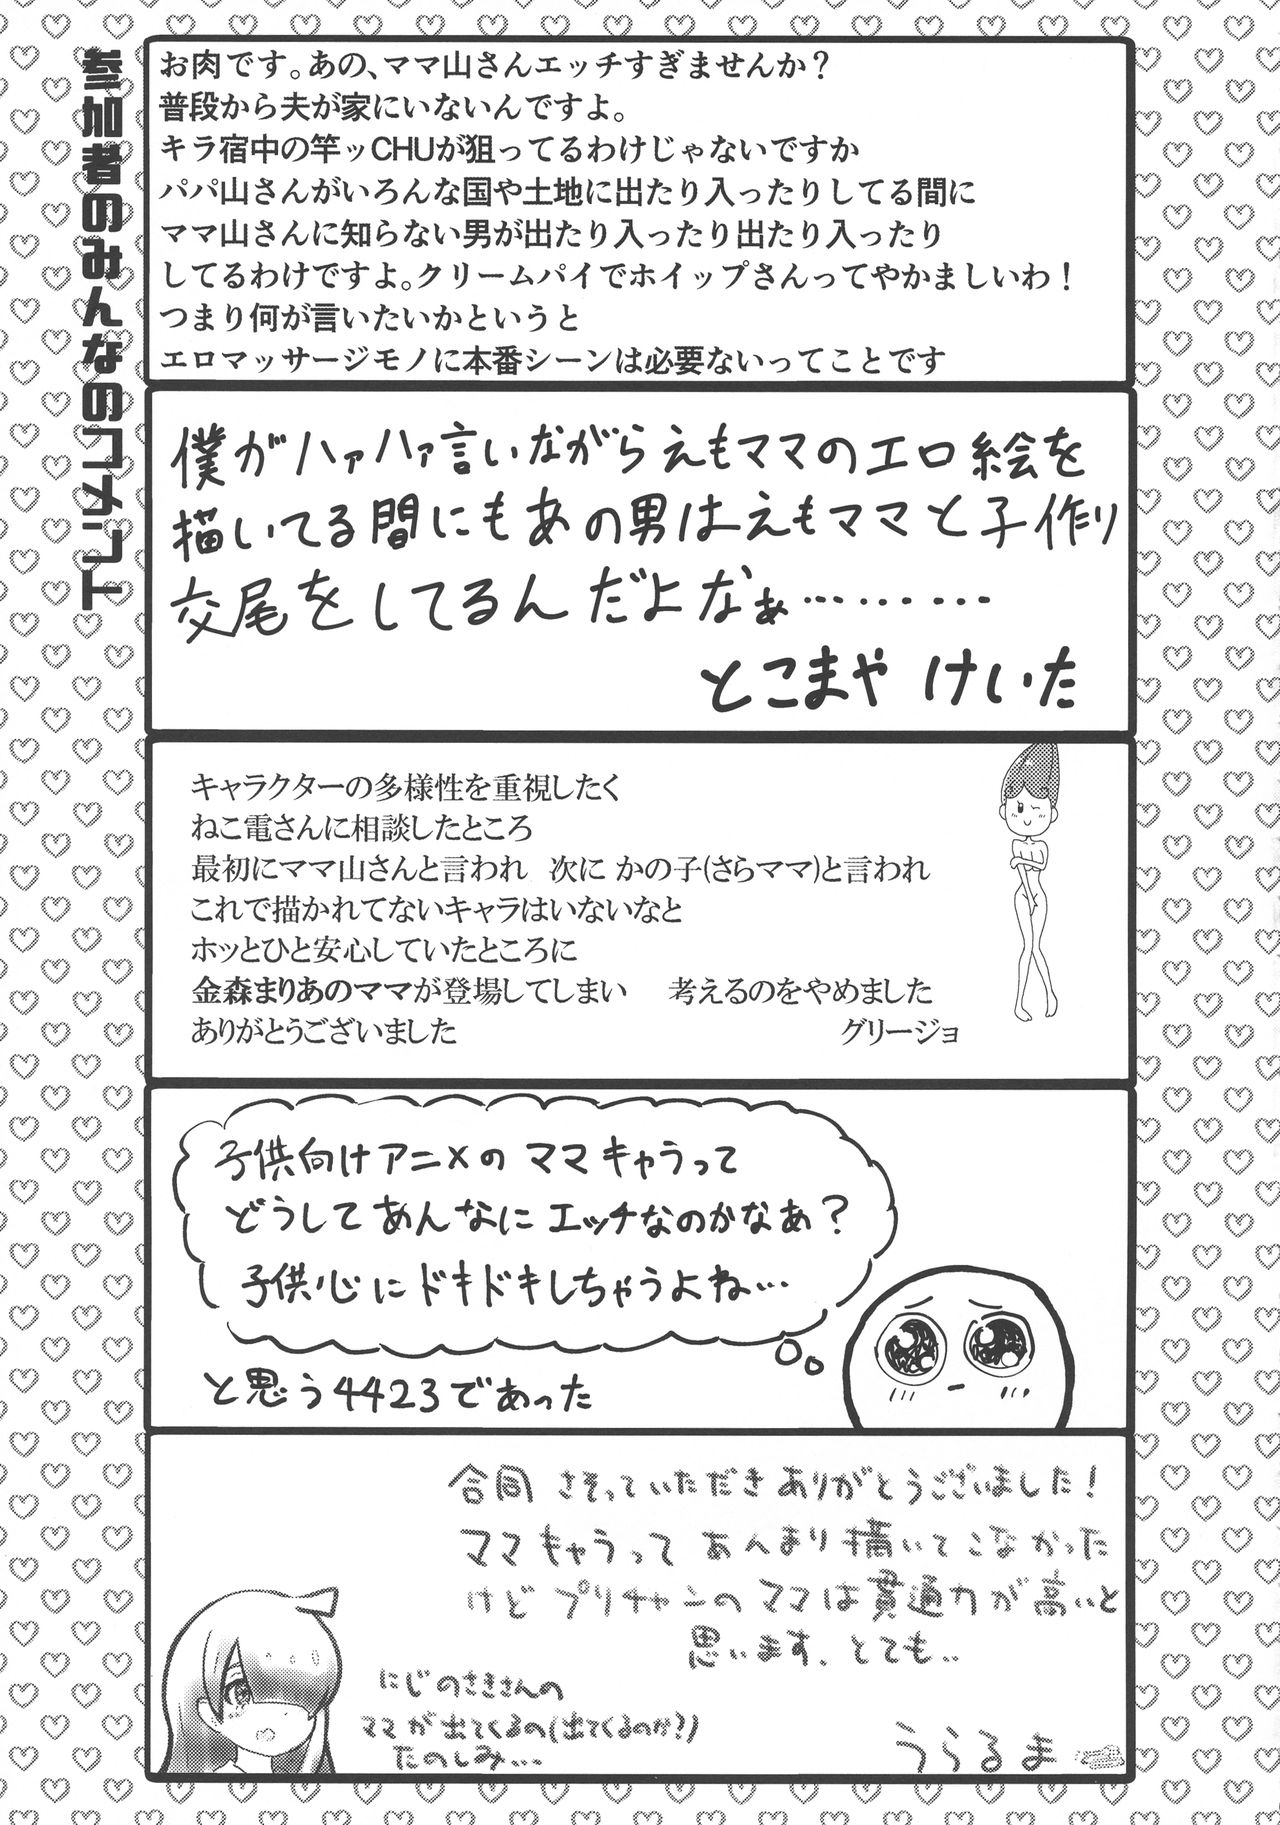 参加者のみんなのコメント
お肉です。あの、ママ山さんエッチすぎませんか？
普段から夫が家にいないんですよ。
キラ宿中の竿ッCHUが狙ってるわけじゃないですか
パパ山さんがいろんな国や土地に出たり入ったりしてる間に
ママ山さんに知らない男が出たり入ったり出たり入ったり
してるわけですよ。クリームパイでホイップさんってやかましいわ！
つまり何が言いたいかというと
エロマッサージモノに本番シーンは必要ないってことです
僕がハァハァ言いながらえもママのエロ絵を
描いてる間にもあの男はえもママと子作り
交尾をしてるんだよなぁ………
とこまや けいた
キャラクターの多様性を重視したく
ねこ電さんに相談したところ
最初にママ山さんと言われ 次に かの子(さらママ)と言われ
これで描かれてないキャラはいないなと
ホッとひと安心していたところに
金森まりあのママが登場してしまい 考えるのをやめました
ありがとうございました グリージョ
子供向けアニメのママキャラって
どうしてあんなにエッチなのかなぁ？
子供心にドキドキしちゃうよね…
と思う4423であった
合同 さそっていただきありがとうございました！
ママキャラってあんまり描いてこなかった
けどプリチャンのママは貫通力が高いと
思います、とても..
にじのさきさんの
ママが出てくるの(出てくるのか?)
たのしみ...
うらるま